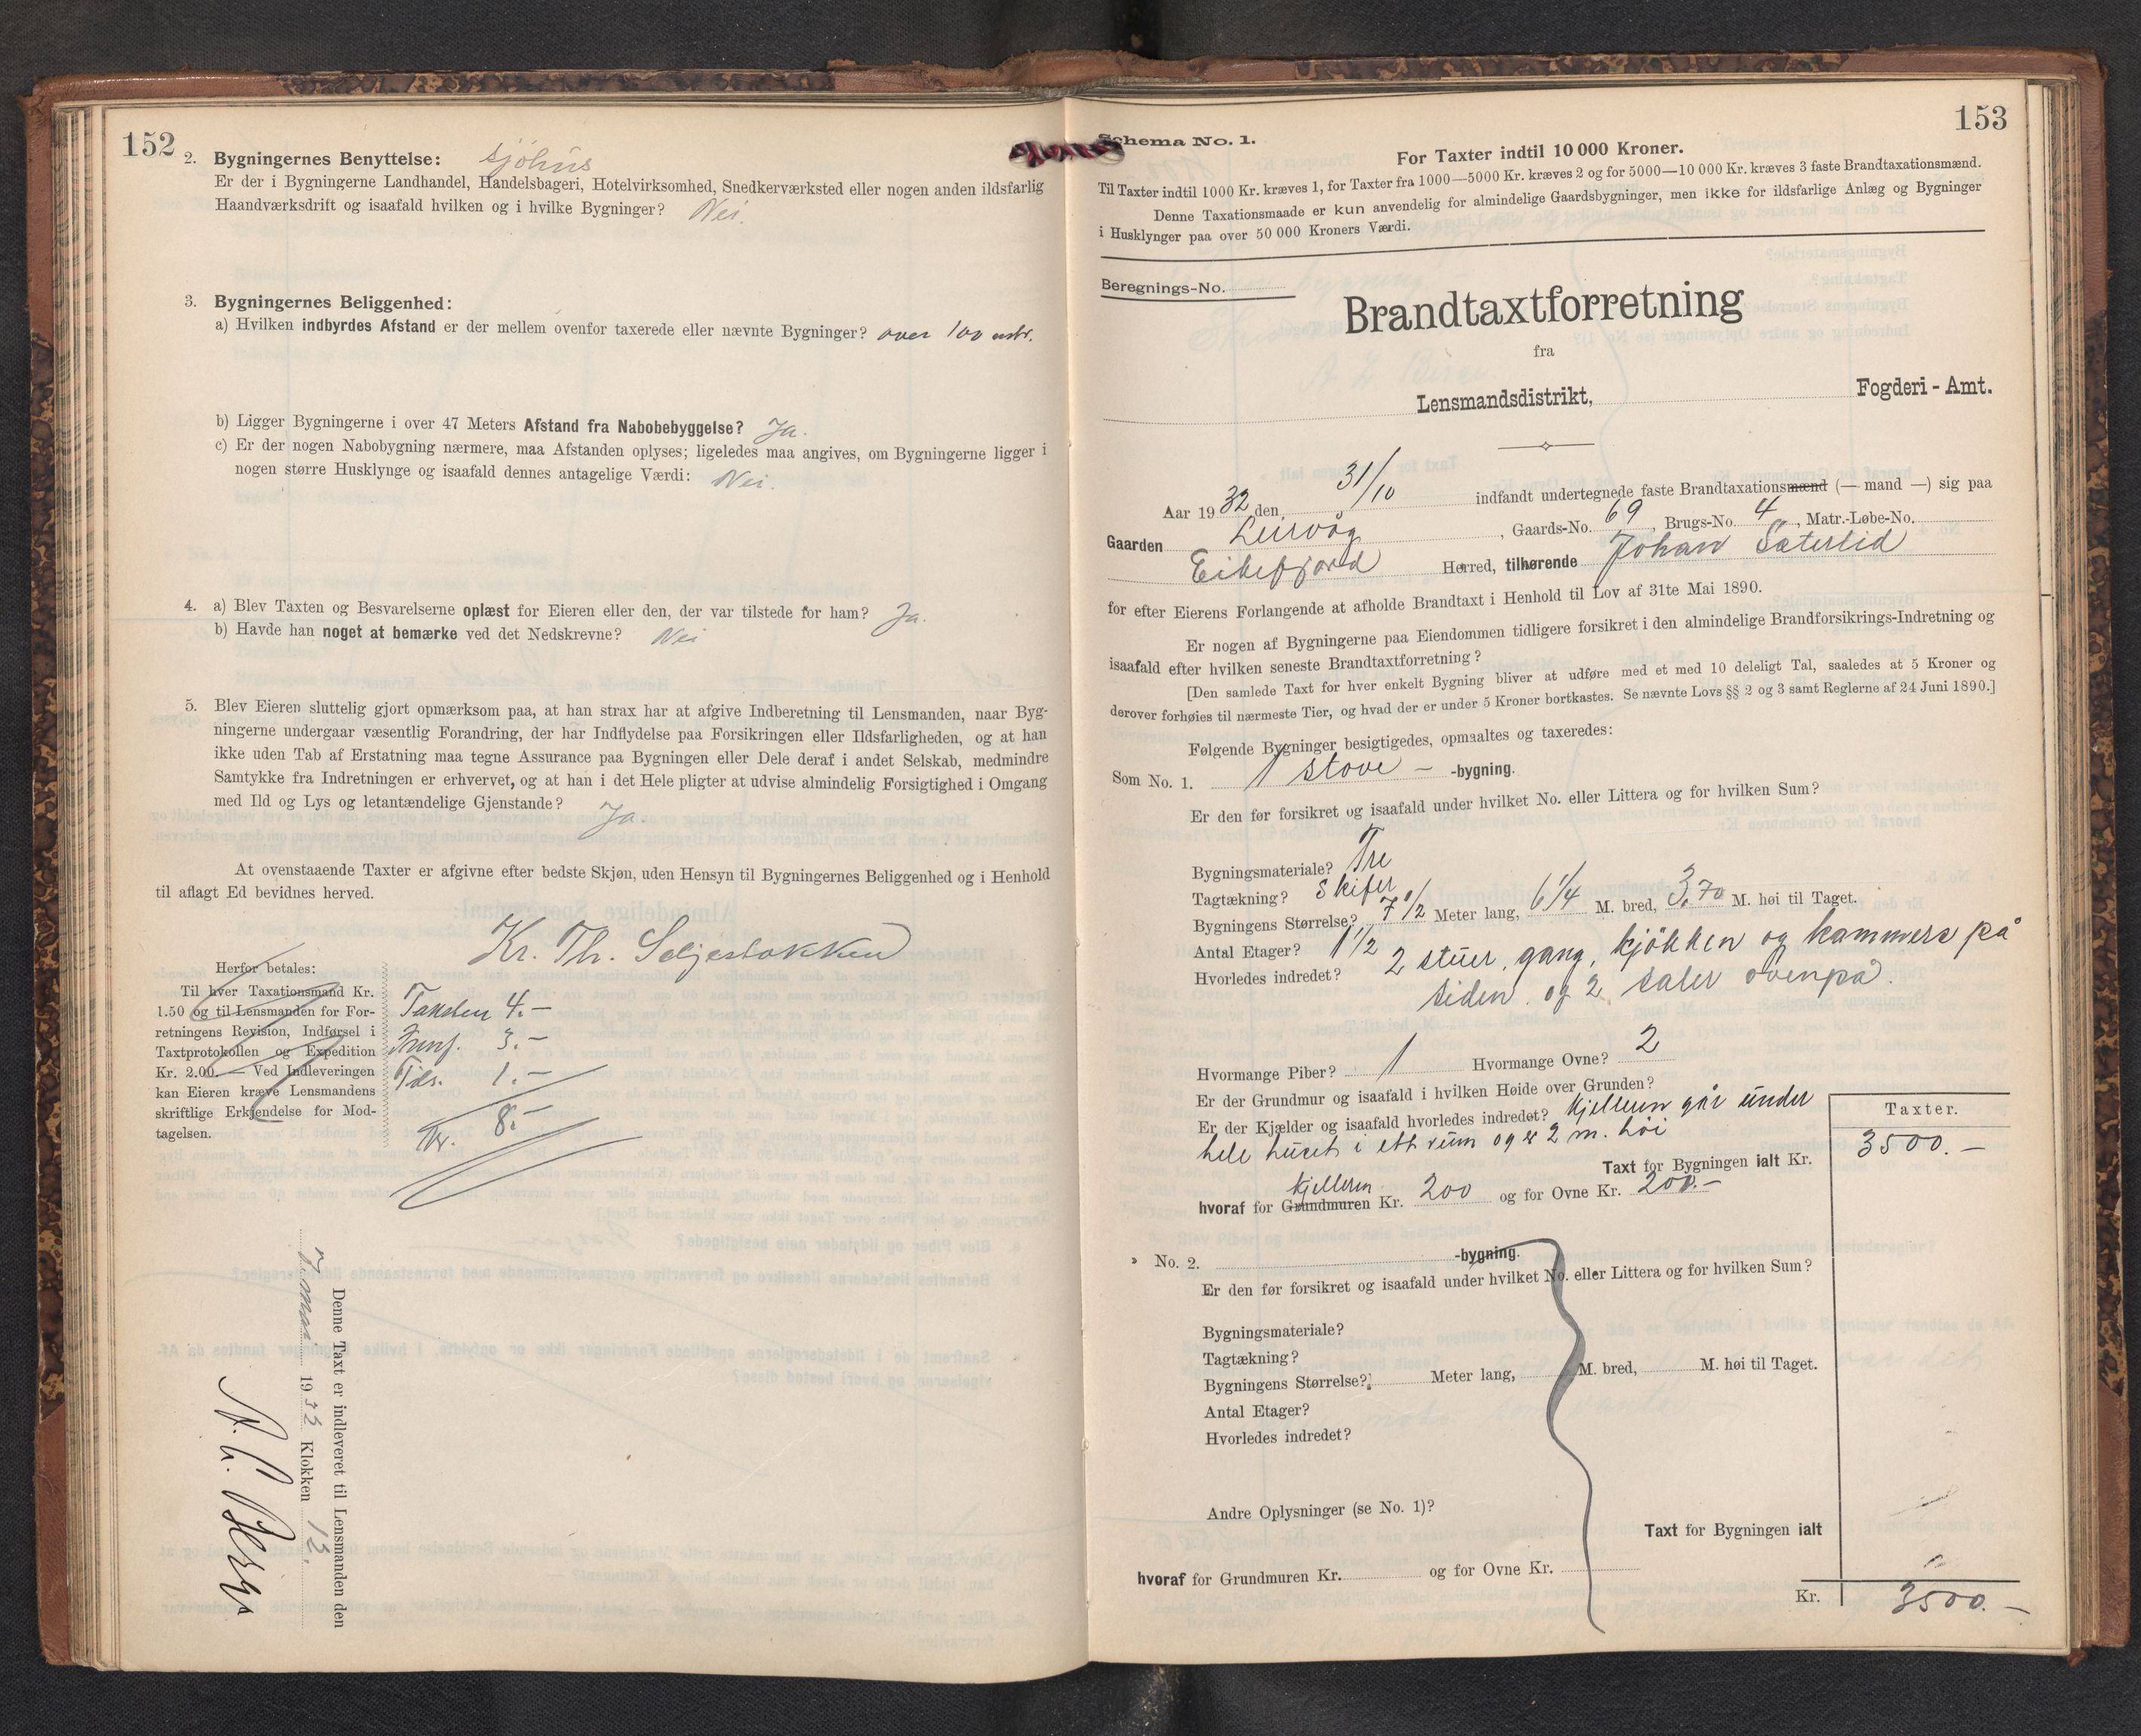 152
2. Bygningernes Benyttelse: sjöhus
Er der i Bygningerne Landhandel, Handelsbageri, Hotelvirksomhed, Snedkerværksted eller nogen anden ildsfarlig
Haandværksdrift og isaafald hvilken og i hvilke Bygninger? Nei.
3. Bygningernes Beliggenhed:
a) Hvilken indbyrdes Afstand er der mellem ovenfor taxerede eller nævnte Bygninger? over 100 mtr.
b) Ligger Bygningerne i over 47 Meters Afstand fra Nabobebyggelse? Ja.
c) Er der nogen Nabobygning nærmere, maa Afstanden oplyses; ligeledes maa angives, om Bygningerne ligger i
nogen større Husklynge og isaafald dennes antagelige Værdi: Nei.
4. a) Blev Taxten og Besvarelserne oplæst for Eieren eller den, der var tilstede for ham? Ja.
b) Havde han noget at bemærke ved det Nedskrevne? Nei
5. Blev Eieren sluttelig gjort opmærksom paa, at han strax har at afgive Indberetning til Lensmanden, naar Byg-
ningerne undergaar væsentlig Forandring, der har Indflydelse paa Forsikringen eller Ildsfarligheden, og at han
ikke uden Tab af Erstatning maa tegne Assurance paa Bygningen eller Dele deraf i andet Selskab, medmindre
Samtykke fra Indretningen er erhvervet, og at han i det Hele pligter at udvise almindelig Forsigtighed i Omgang
med Ild og Lys og letantændelige Gjenstande? Ja.
At ovenstaaende Taxter er afgivne efter bedste Skjøn, uden Hensyn til Bygningernes Beliggenhed og i Henhold
til aflagt Ed bevidnes herved.
Kr. Th. Seljestokken
Herfor betales:
Til hver Taxationsmand Kr.
1.50 og til Lensmanden for For-
retningens Revision, Indførsel i
Taxtprotokollen og Expedition
Kr. 2.00. — Ved Indleveringen
kan Eieren kræve Lensmandens
skriftlige Erkjendelse for Mod-
tagelsen.
Taksten 4.-
3.-
1.-
Kr. 8.-
Denne Taxt er indleveret til Lensmanden den
1933 Klokken 12.
Schema No. 1.
153
For Taxter indtil 10 000 Kroner.
Til Taxter indtil 1000 Kr. kræves 1, for Taxter fra 1000—5000 Kr. kræves 2 og for 5000—10 000 Kr. kræves 3 faste Brandtaxationsmænd.
Denne Taxationsmaade er kun anvendelig for almindelige Gaardsbygninger, men ikke for ildsfarlige Anlæg og Bygninger
i Husklynger paa over 50 000 Kroners Værdi.
Beregnings-No.
Brandtaxtforretning
fra
Lensmandsdistrikt, Fogderi - Amt.
Aar 1932 den 31/10 indfandt undertegnede faste Brandtaxationsmænd (— mand —) sig paa
Gaarden Leirvåg, Gaards-No. 69, Brugs-No. 4, Matr.-Løbe-No.
Eikefjord Herred, tilhørende Johan Sæterlid
for efter Eierens Forlangende at afholde Brandtaxt i Henhold til Lov af 31te Mai 1890.
Er nogen af Bygningerne paa Eiendommen tidligere forsikret i den almindelige Brandforsikrings-Indretning og
isaafald efter hvilken seneste Brandtaxtforretning?
[Den samlede Taxt for hver enkelt Bygning bliver at udføre med et med 10 deleligt Tal, saaledes at 5 Kroner og
derover forhøies til nærmeste Tier, og hvad der er under 5 Kroner bortkastes. Se nævnte Lovs §§ 2 og 3 samt Reglerne af 24 Juni 1890.]
Følgende Bygninger besigtigedes, opmaaltes og taxeredes:
Som No. 1. 1 stove - -bygning.
Er den før forsikret og isaafald under hvilket No. eller Littera og for hvilken Sum?
Bygningsmateriale? Tre
Tagtækning? Skifer
Bygningens Størrelse? 7 1/2 Meter lang, 6 1/4 M. bred, 3,70 M. høi til Taget.
Antal Etager? 1 1/2
Hvorledes indredet? 2 stuer, gang, kjökken og kammers på
siden og 2 saler ovenpå.
Hvormange Piber? 1 Hvormange Ovne? 2
Er der Grundmur og isaafald i hvilken Høide over Grunden?
Er der Kjælder og isaafald hvorledes indredet? Kjelleren går under
hele huset i ett rum og er 2 m. höi
Taxter.
Taxt for Bygningen ialt Kr. 3500.-
kjelleren
hvoraf for Grundmuren Kr. 200 og for Ovne Kr. 200.-
No. 2. -bygning.
Er den før forsikret og isaafald under hvilket No. eller Littera og for hvilken Sum?
Bygningsmateriale?
Tagtækning?
Bygningens Størrelse? Meter lang, M. bred, M. høi til Taget.
Antal Etager?
Hvorledes indredet?
Andre Oplysninger (se No. 1)?
Taxt for Bygningen ialt
hvoraf for Grundmuren Kr. og for Ovne Kr.
Kr. 3500.-